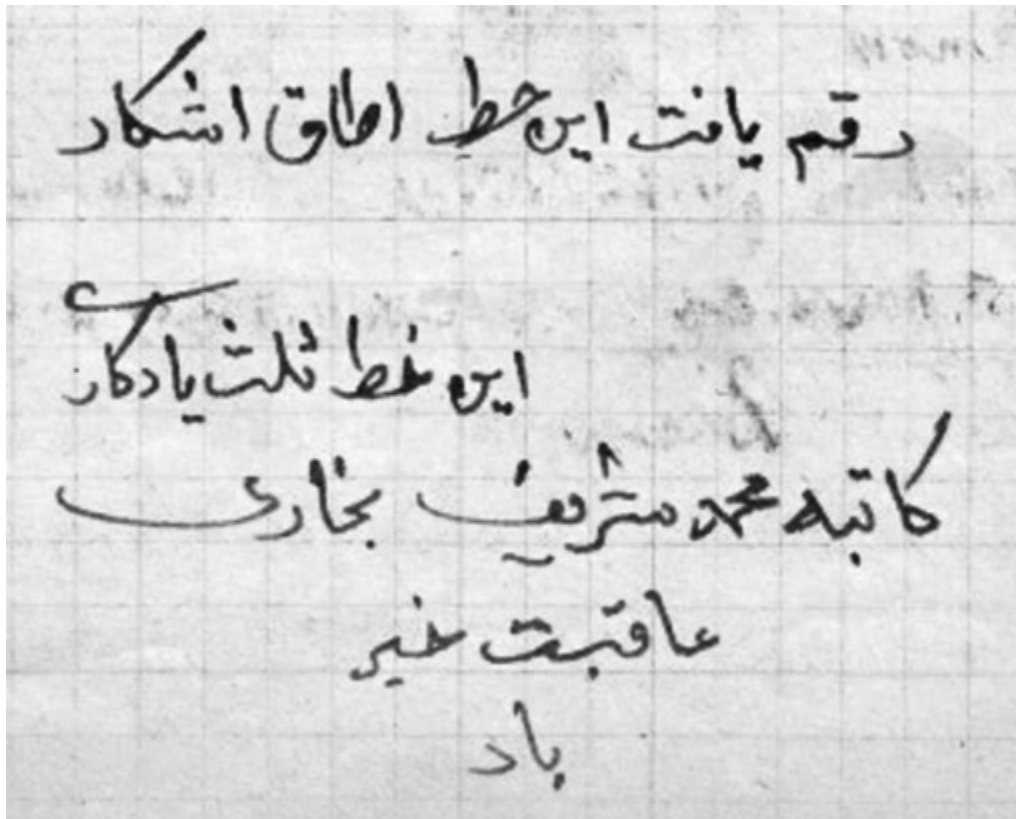 رقم یافت این خط اطاق اشکار
این خط ثلث یادکاری
کاتبه محمد شریف بخاری
عاقبت خیر
باد